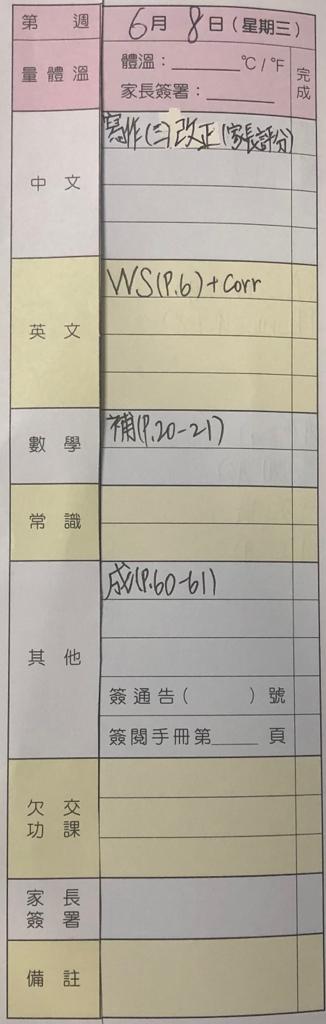 第 週 6月 8日(星期三)
量體溫 體溫:______ ℃/℉ 完成
家長簽署:______
中文 寫作(三)改正(家長評分)
英文 WS(P.6)+Corr
數學 補(P.20-21)
常識
其他 成(P.60-61)
簽通告( )號
簽閱手冊第____頁
欠交功課
家長簽署
備註